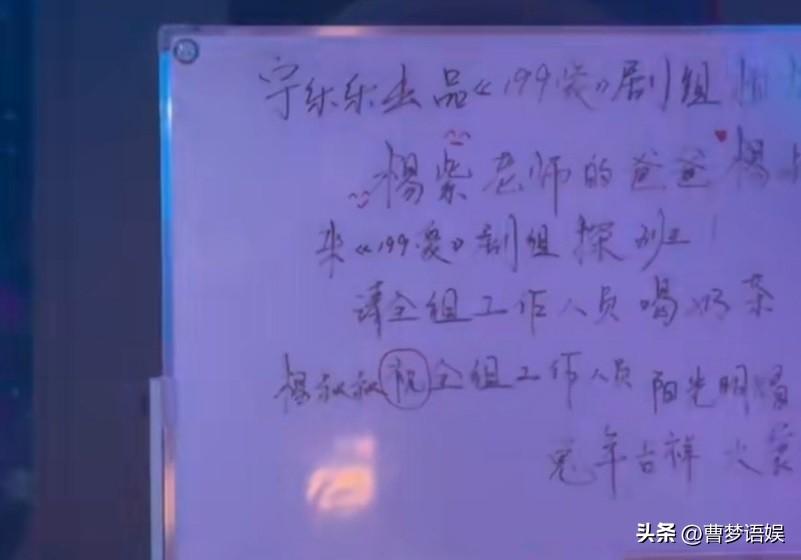 宁乐乐出品《199爱》剧组
杨紫老师的爸爸杨
来《199爱》剧组探班！
请全组工作人员喝奶茶
杨叔叔祝全组工作人员 阳光明媚
兔年吉祥 大家
头条 @曹梦语娱